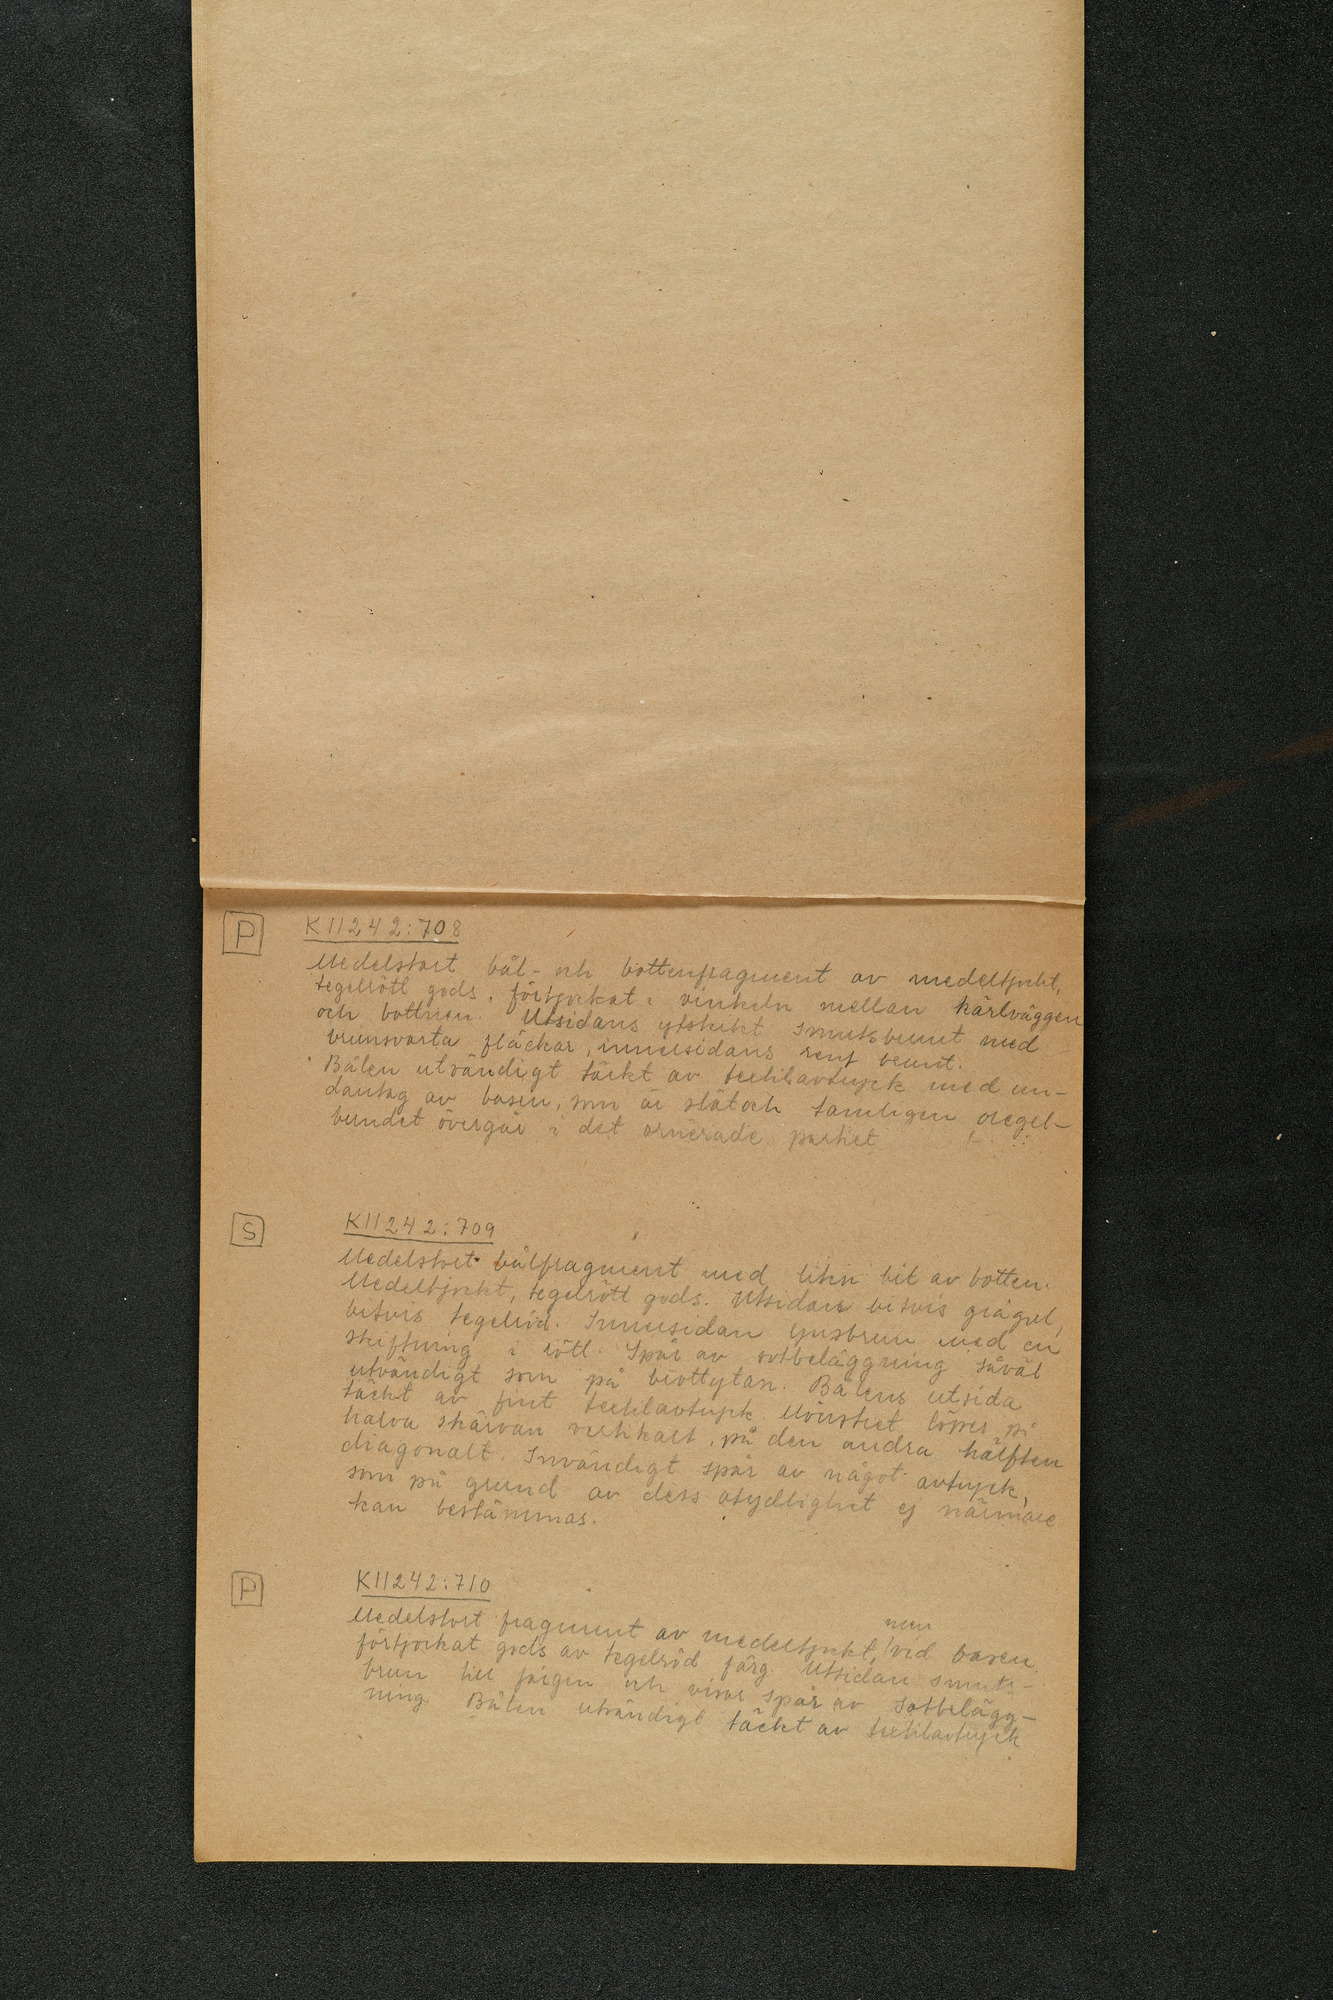 P K11242:708
Medelstort bål- och bottenfragment av medeltjockt,
tegelrött gods, förtjockat i vinkeln mellan kärlväggen
och bottnen. Utsidans ytskikt smutsbrunt med
brunsvarta fläckar, innersidans rent brunt.
Bålen utvändigt täckt av textilavtryck med un-
dantag av basen, som är slät och tämligen oregel-
bundet övergår i det ornerade partiet
S K11242:709
Medelstort bålfragment med liten bit av botten.
Medeltjockt, tegelrött gods. Utsidan bitvis grågul,
bitvis tegelröd. Innersidan ljusbrun med en
skiftning i rött. Spår av sotbeläggning såväl
utvändigt som på brottytan. Bålens utsida
täckt av fint textilavtryck. Mönstret löper på
halva skärvan vertikalt, på den andra hälften
diagonalt. Invändigt spår av något avtryck,
som på grund av dess otydlighet ej närmare
kan bestämmas.
P K11242:710
Medelstort fragment av medeltjockt, men vid basen
förtjockat gods av tegelröd färg. Utsidan smuts-
brun till färgen och visar spår av sotbelägg-
ning. Bålen utvändigt täckt av textilavtryck